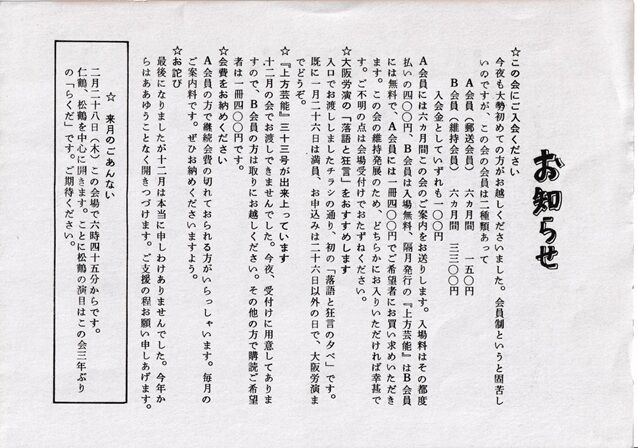 お知らせ
☆この会にご入会ください
今夜も大勢初めての方がお越しくださいました。会員制というと固苦し
いのですが、この会の会員は二種類あって
A会員（郵送会員） 六ヵ月間 一五〇円
B会員（維持会員） 六ヵ月間 三三〇〇円
入会金としていずれも一〇〇円
A会員には六ヵ月間この会のご案内をお送りします。入場料はその都度
払いの四〇〇円、B会員は入場無料、隔月発行の『上方芸能』はB会員
には無料で、A会員には一冊四〇〇円でご希望者にお買い求めいただき
ます。この会の維持発展のため、どちらかにお入りいただければ幸甚で
す。ご不明の点は会場受付けでおたずねください。
☆大阪労演の「落語と狂言」をおすすめします
入口でお渡ししましたチラシの通り、初の「落語と狂言の夕べ」です。
既に一月二十六日は満員、お申込みは二十六日以外の日で、大阪労演ま
でどうぞ。
☆『上方芸能』三十三号が出来上っています
十二月の会でお渡しできませんでした。今夜、受付けに用意してありま
すので、B会員の方は取りにお越しください。その他の方で購読ご希望
者は一冊四〇〇円です。
☆会費をお納めください
A会員の方で継続会費の切れておられる方がいらっしゃいます。毎月の
ご案内料です。ぜひお納めくださいますよう。
☆お詑び
最後になりましたが十二月は本当に申しわけありませんでした。今年か
らはああゆうことなく開きつづけます。ご支援の程お願い申しあげます。
☆ 来月のごあんない
二月二十八日（木）この会場で六時四十五分からです。
仁鶴、松鶴を中心に開きます。ことに松鶴の演目はこの会三年ぶり
の「らくだ」です。ご期待ください。